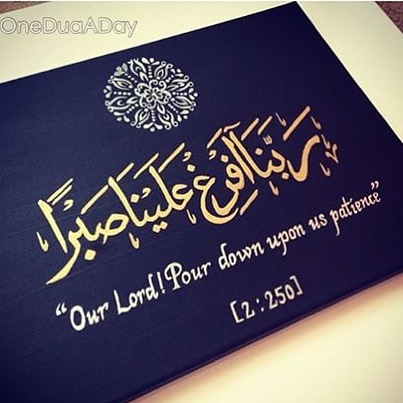 OneDuaADay
رَبَّنَا أَفْرِغْ عَلَيْنَا صَبْرًا
“Our Lord! Pour down upon us patience”
[2:250]